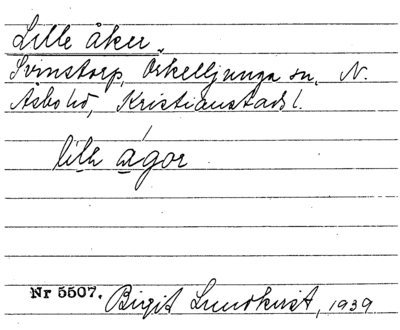 Lille åker.
Svinstorp, Örkelljunga sn, N.
Åsbo hd, Kristianstads l.
lilh ågor
Nr 5507. Birgit Lundkvist, 1939